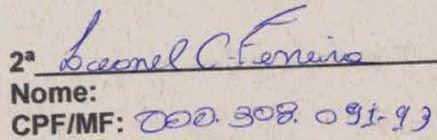 2ª Leonel C. Ferreira
Nome:
CPF/MF: 000.308.091-93